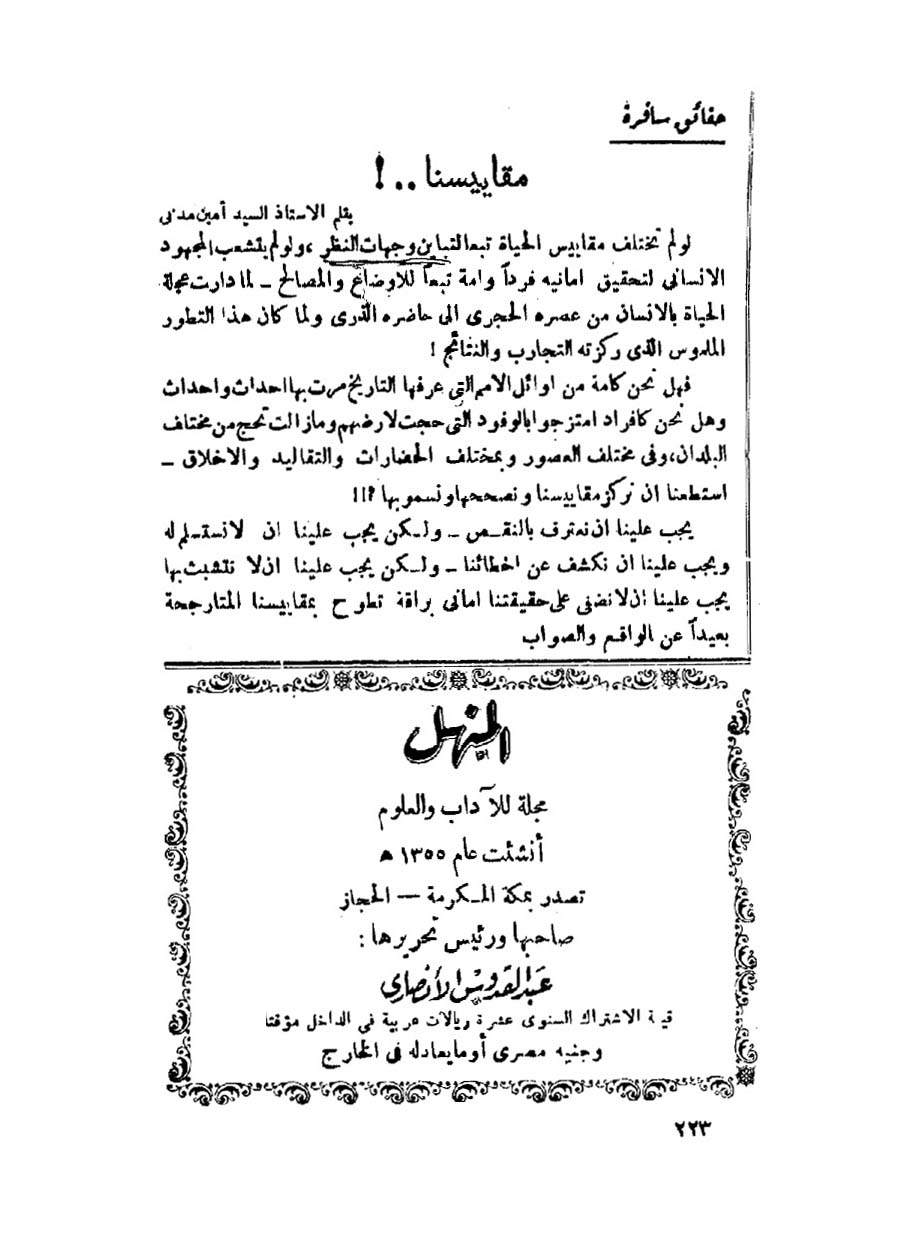 حقائق سافرة
مقاييسنا . . !
بقلم الاستاذ السيد أمين مدنى
لولم تختلف مقاييس الحياة تبعا لتباين وجهات النظر ، ولولم يتشعب المجهود
الانسانى لتحقيق امانيه فرداً وامة تبعاً للاوضاع والمصالح ـ لما دارت عجلة
الحياة بالانسان من عصره الحجرى الى حاضره الذرى ولما كان هذا التطور
الملموس الذى ركزته التجارب والنتائج !
فهل نحن كامة من اوائل الامم التى عرفها التاريخ مرت بها احداث واحداث
وهل نحن كافراد امتزجوا بالوفود التى حجت لارضهم ومازالت تحج من مختلف
البلدان ، وفى مختلف العصور وبمختلف الحضارات والتقاليد والاخلاق ـ
استطعنا ان نركز مقاييسنا ونصححها ونسمو بها ؟!!!
يجب علينا ان نعترف بالنقص ـ ولكن يجب علينا ان لا نستسلم له
ويجب علينا ان نكشف عن اخطائنا ـ ولكن يجب علينا ان لا نتشبث بها
يجب علينا ان لا نضفى على حقيقتنا امانى براقة تطوح بمقاييسنا المتارجحة
بعيداً عن الواقع والصواب
المنهل
مجلة للآداب والعلوم
أنشئت عام ١٣٥٥ ه
تصدر بمكة المكرمة — الحجاز
صاحبها ورئيس تحريرها :
عبد القدوس الأنصاري
قيمة الاشتراك السنوى عشرة ريالات عربية فى الداخل مؤقتا
وجنيه مصرى أو مايعادله فى الخارج
٢٢٣